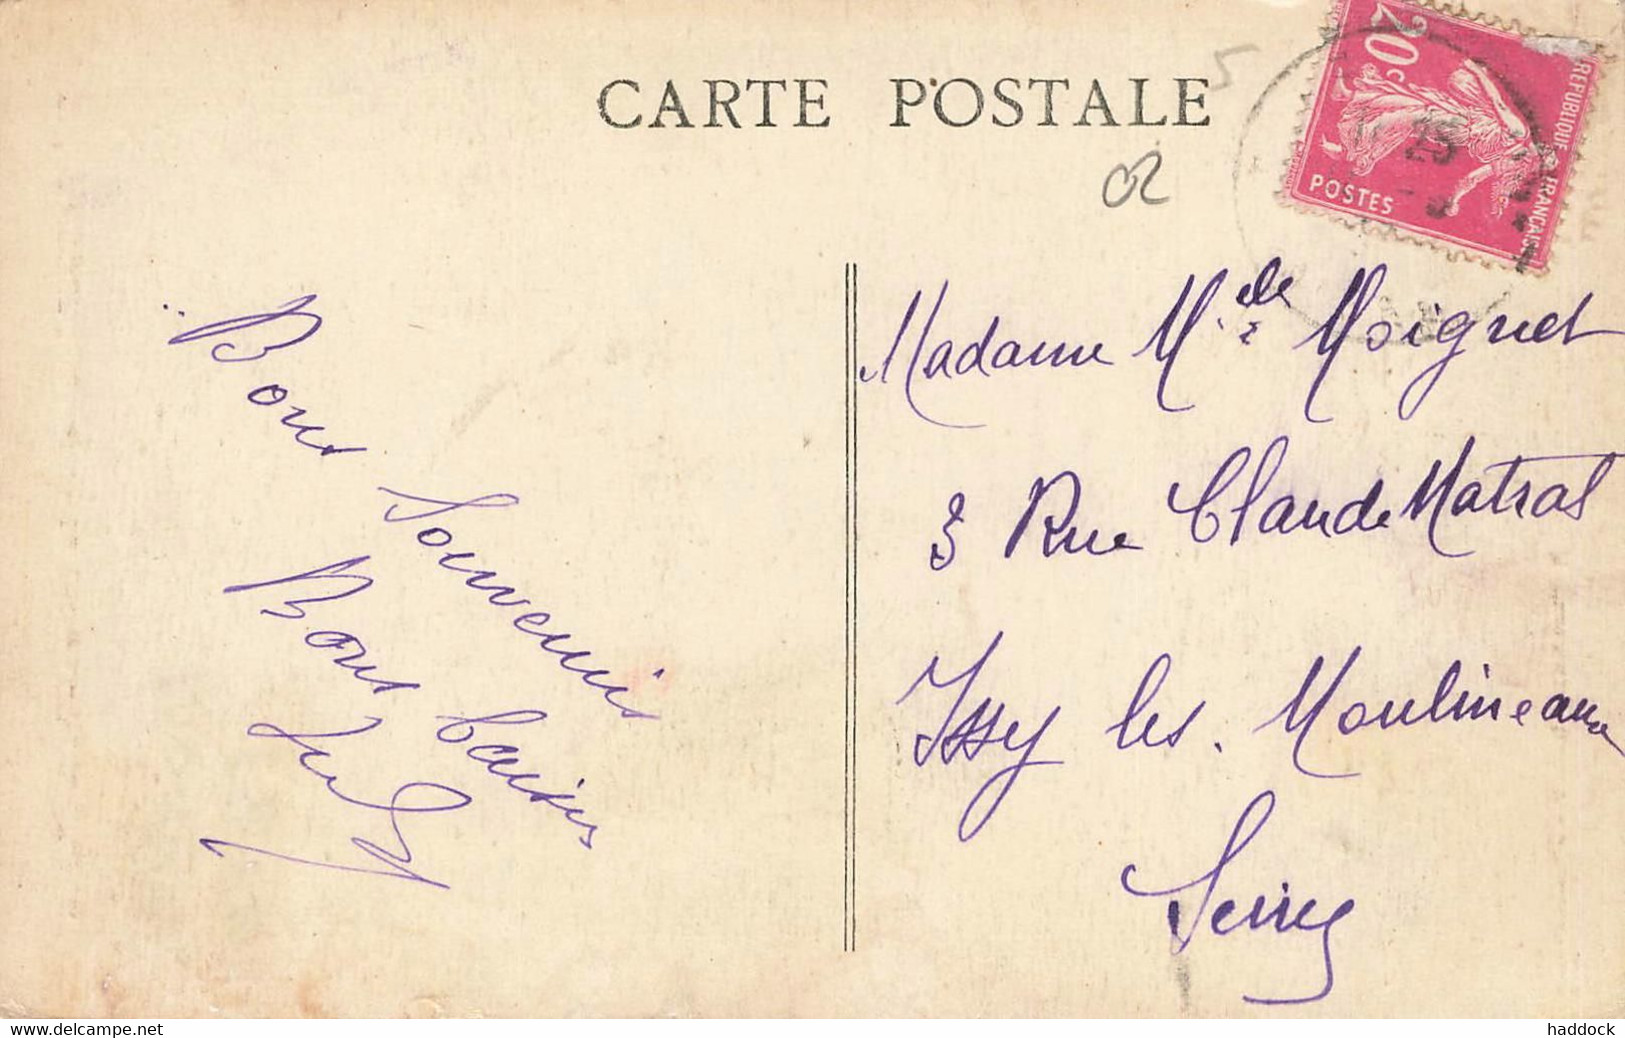 CARTE POSTALE
5
02
20c
REPUBLIQUE FRANÇAISE
POSTES
25
Bons
Souvenirs
Bons baisers
Madame Mlle Moignet
3 Rue Claude Matrat
Issy les Moulineaux
Seine
www.delcampe.net
haddock